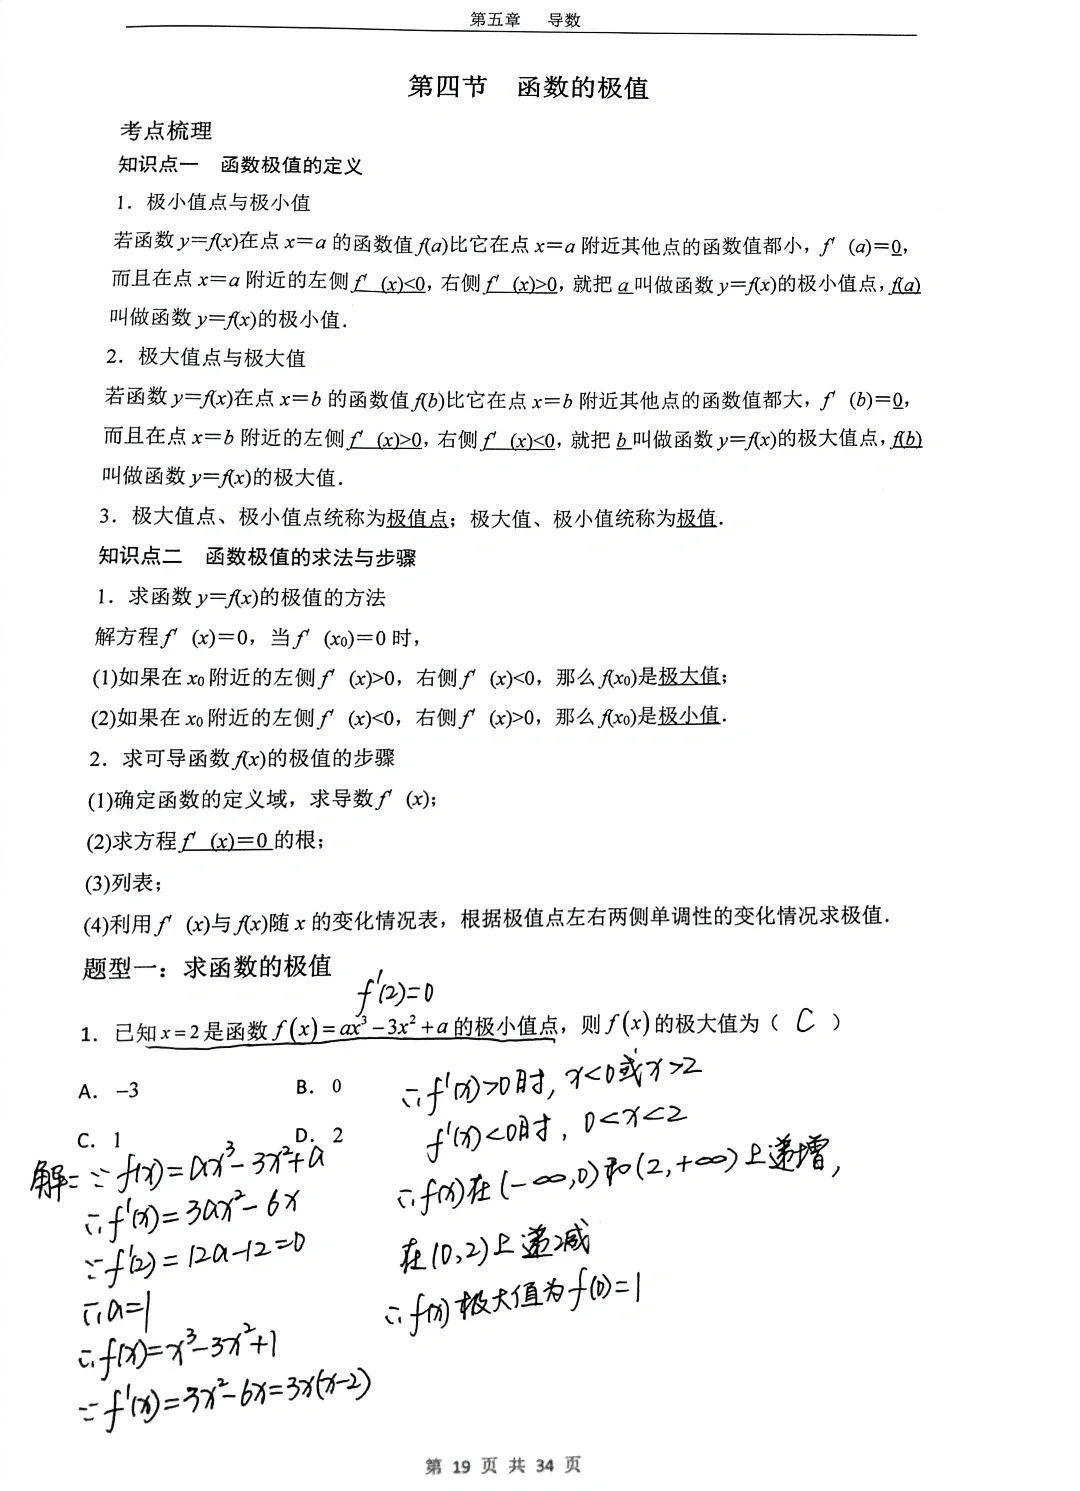 第五章 导数
第四节 函数的极值
考点梳理
知识点一 函数极值的定义
1．极小值点与极小值
若函数 y＝f(x)在点 x＝a 的函数值 f(a)比它在点 x＝a 附近其他点的函数值都小，f′(a)＝0，
而且在点 x＝a 附近的左侧 f′(x)<0，右侧 f′(x)>0，就把 a 叫做函数 y＝f(x)的极小值点，f(a)
叫做函数 y＝f(x)的极小值．
2．极大值点与极大值
若函数 y＝f(x)在点 x＝b 的函数值 f(b)比它在点 x＝b 附近其他点的函数值都大，f′(b)＝0，
而且在点 x＝b 附近的左侧 f′(x)>0，右侧 f′(x)<0，就把 b 叫做函数 y＝f(x)的极大值点，f(b)
叫做函数 y＝f(x)的极大值．
3．极大值点、极小值点统称为极值点；极大值、极小值统称为极值．
知识点二 函数极值的求法与步骤
1．求函数 y＝f(x)的极值的方法
解方程 f′(x)＝0，当 f′(x₀)＝0 时，
(1)如果在 x₀ 附近的左侧 f′(x)>0，右侧 f′(x)<0，那么 f(x₀)是极大值；
(2)如果在 x₀ 附近的左侧 f′(x)<0，右侧 f′(x)>0，那么 f(x₀)是极小值．
2．求可导函数 f(x)的极值的步骤
(1)确定函数的定义域，求导数 f′(x)；
(2)求方程 f′(x)＝0 的根；
(3)列表；
(4)利用 f′(x)与 f(x)随 x 的变化情况表，根据极值点左右两侧单调性的变化情况求极值．
题型一：求函数的极值
f'(2)=0
1．已知 x=2 是函数 f(x)=ax³−3x²+a 的极小值点，则 f(x) 的极大值为（ C ）
A． −3 B． 0
C． 1 D． 2
解：∵f(x)=ax³-3x²+a
∴f'(x)=3ax²-6x
∵f'(2)=12a-12=0
∴a=1
∴f(x)=x³-3x²+1
∵f'(x)=3x²-6x=3x(x-2)
∴f'(x)>0时，x<0或x>2
f'(x)<0时，0<x<2
∴f(x)在(-∞,0)和(2,+∞)上递增，
在(0,2)上递减
∴f(x)极大值为f(0)=1
第 19 页 共 34 页